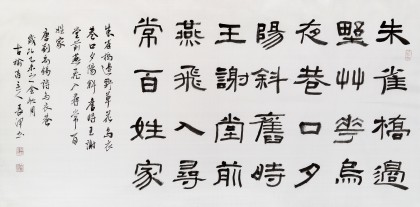 朱雀橋邊
埜艸華烏
衣巷口夕
陽斜舊時
王謝堂前
燕飛入尋
常百姓家
朱雀橋邊野草花烏衣
巷口夕陽斜舊時王謝
堂前燕飛入尋常百
姓家
唐劉禹錫詩烏衣巷